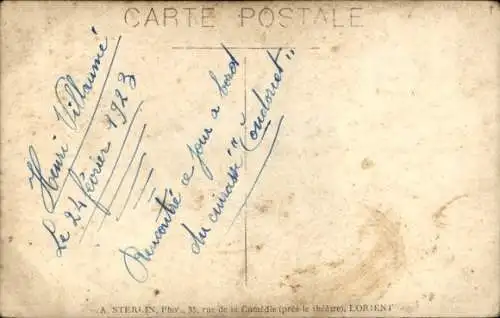 CARTE POSTALE
Henri Villaumé
Le 24 février 1923
Rencontré ce jour a bord
du cuirassé "Condorcet"
A. STERLIN, Phot., 35, rue de la Comédie (près le théâtre), LORIENT